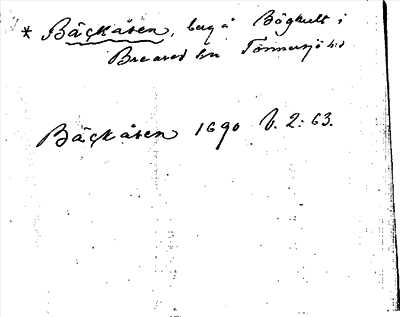 * Bäckåsen, berg å Böghult i
Breared sn Tönnersjö hd
Bäckåsen 1690 V. 2: 63.